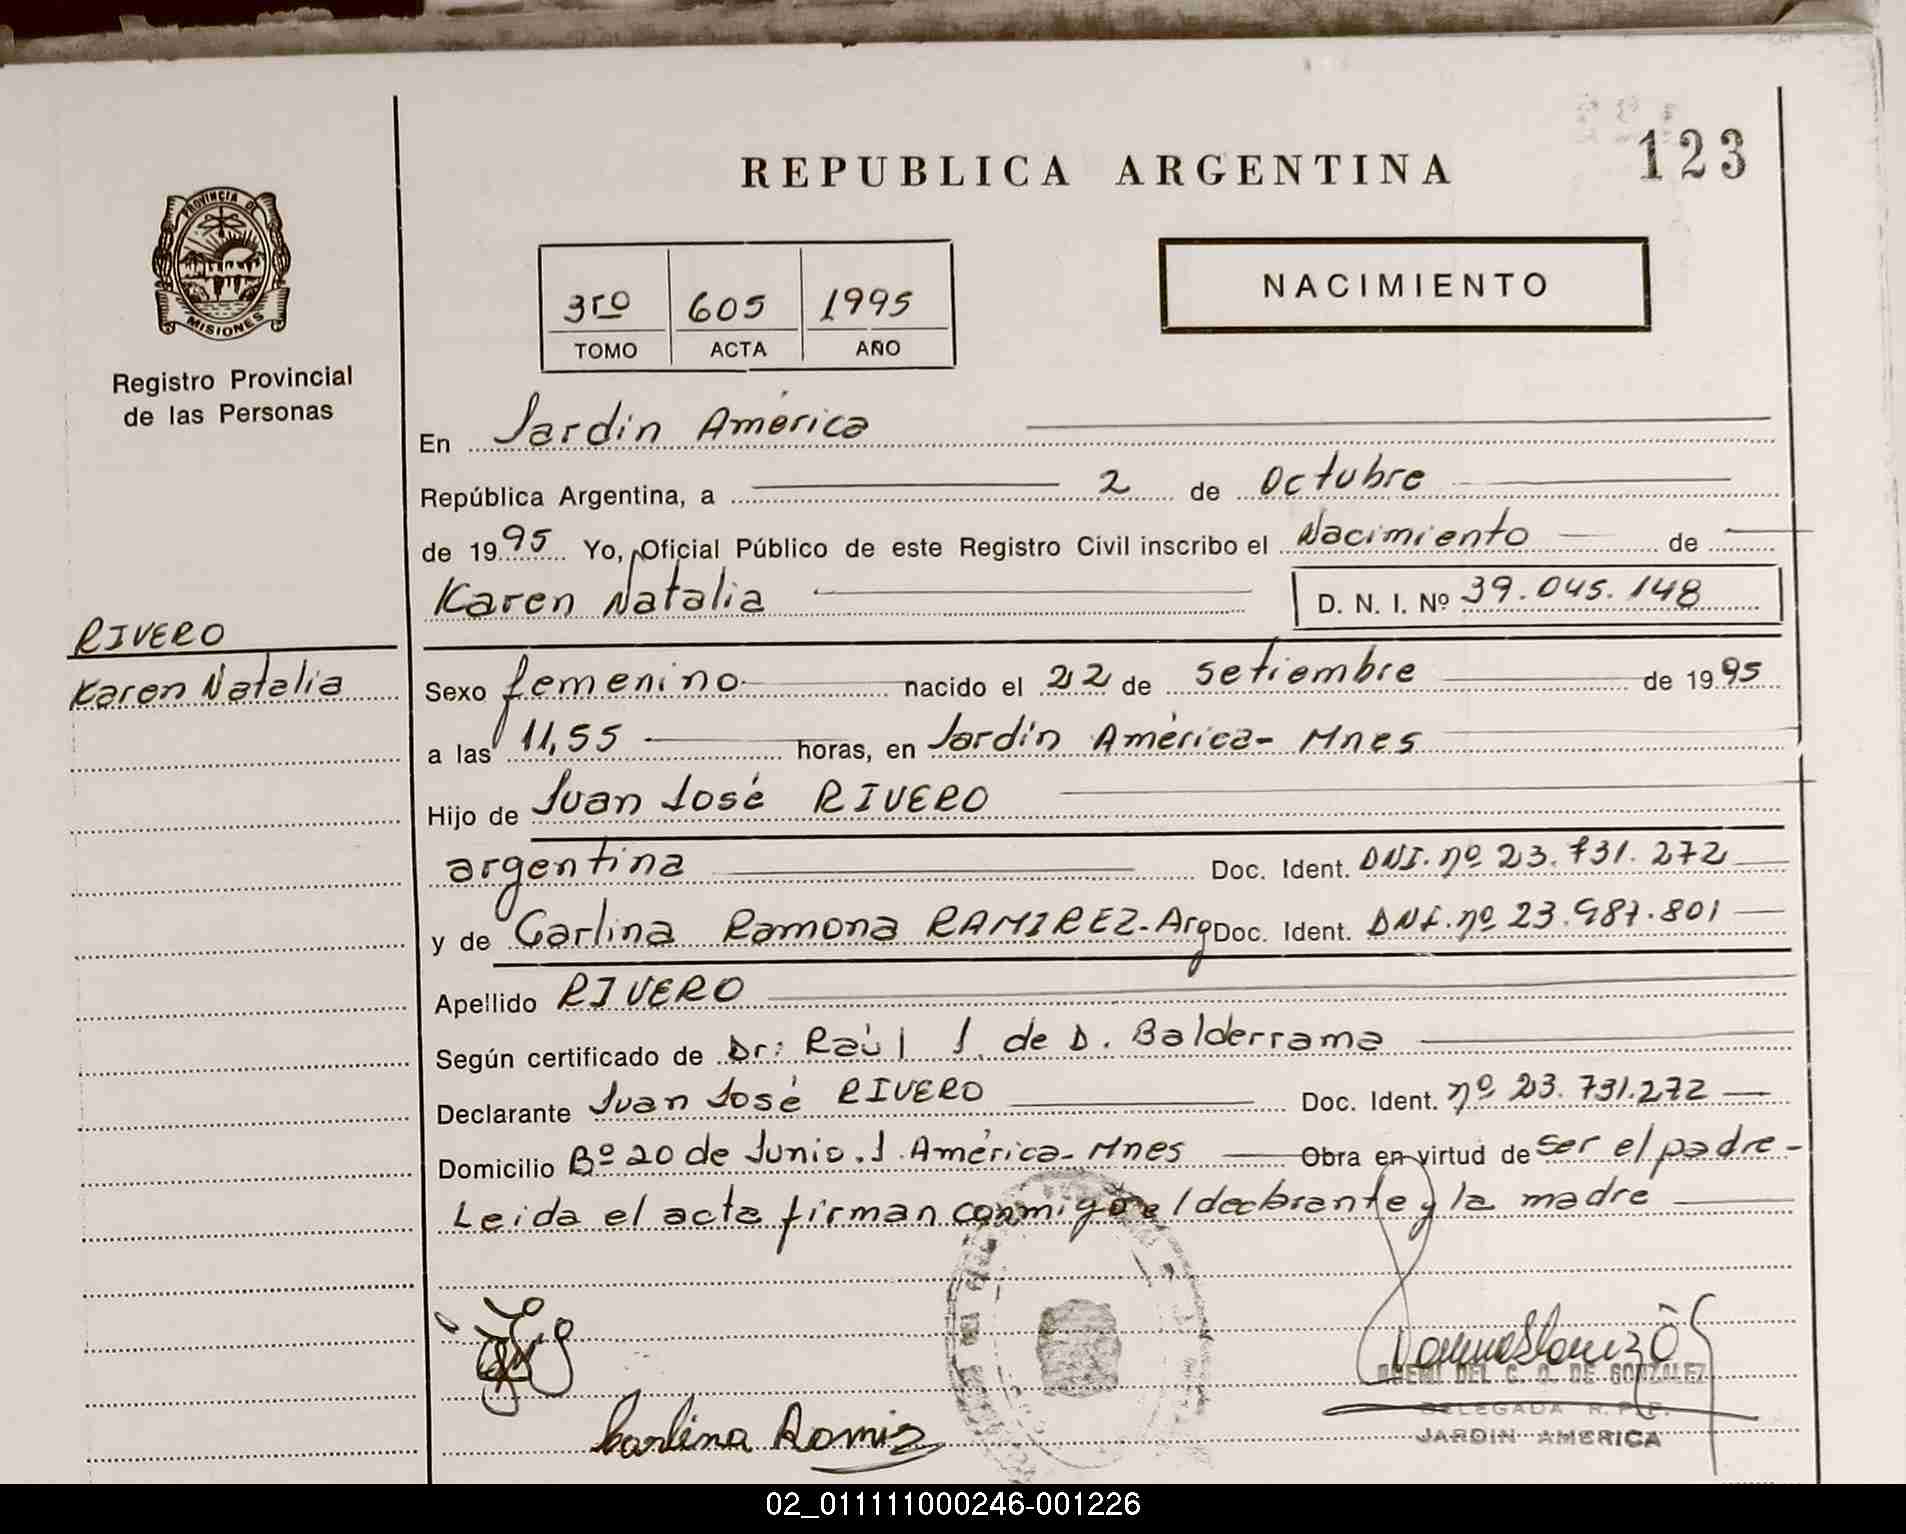 REPUBLICA ARGENTINA
123
PROVINCIA DE
MISIONES
Registro Provincial
de las Personas
3ro 605 1995
TOMO ACTA AÑO
NACIMIENTO
En Jardín América
República Argentina, a 2 de Octubre
de 1995 Yo, Oficial Público de este Registro Civil inscribo el Nacimiento de
Karen Natalia D. N. I. Nº 39.045.148
RIVERO
Karen Natalia
Sexo femenino nacido el 22 de setiembre de 1995
a las 11,55 horas, en Jardín América - Mnes
Hijo de Juan José RIVERO
argentina Doc. Ident. DNI. nº 23.731.272
y de Carlina Ramona RAMIREZ - Arg Doc. Ident. DNI. nº 23.987.801
Apellido RIVERO
Según certificado de Dr: Raúl J. de D. Balderrama
Declarante Juan José RIVERO Doc. Ident. nº 23.731.272
Domicilio Bº 20 de Junio. J. América - Mnes Obra en virtud de ser el padre -
Leida el acta firman conmigo el declarante y la madre
Carlina Ramirez
DEL C. O. DE GONZALEZ
DELEGADA R. P. P.
JARDIN AMERICA
02_011111000246-001226